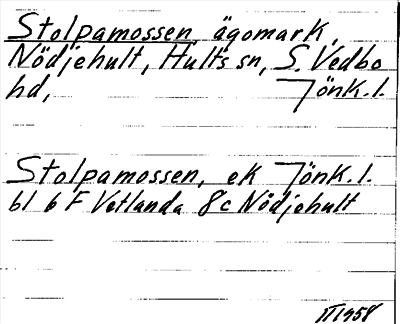 Stolpamossen, ägomark,
Nödjehult, Hults sn, S. Vedbo
hd, Jönk. l.
Stolpamossen, ek Jönk. l.
bl 6 F Vetlanda 8c Nödjehult
VI 1958